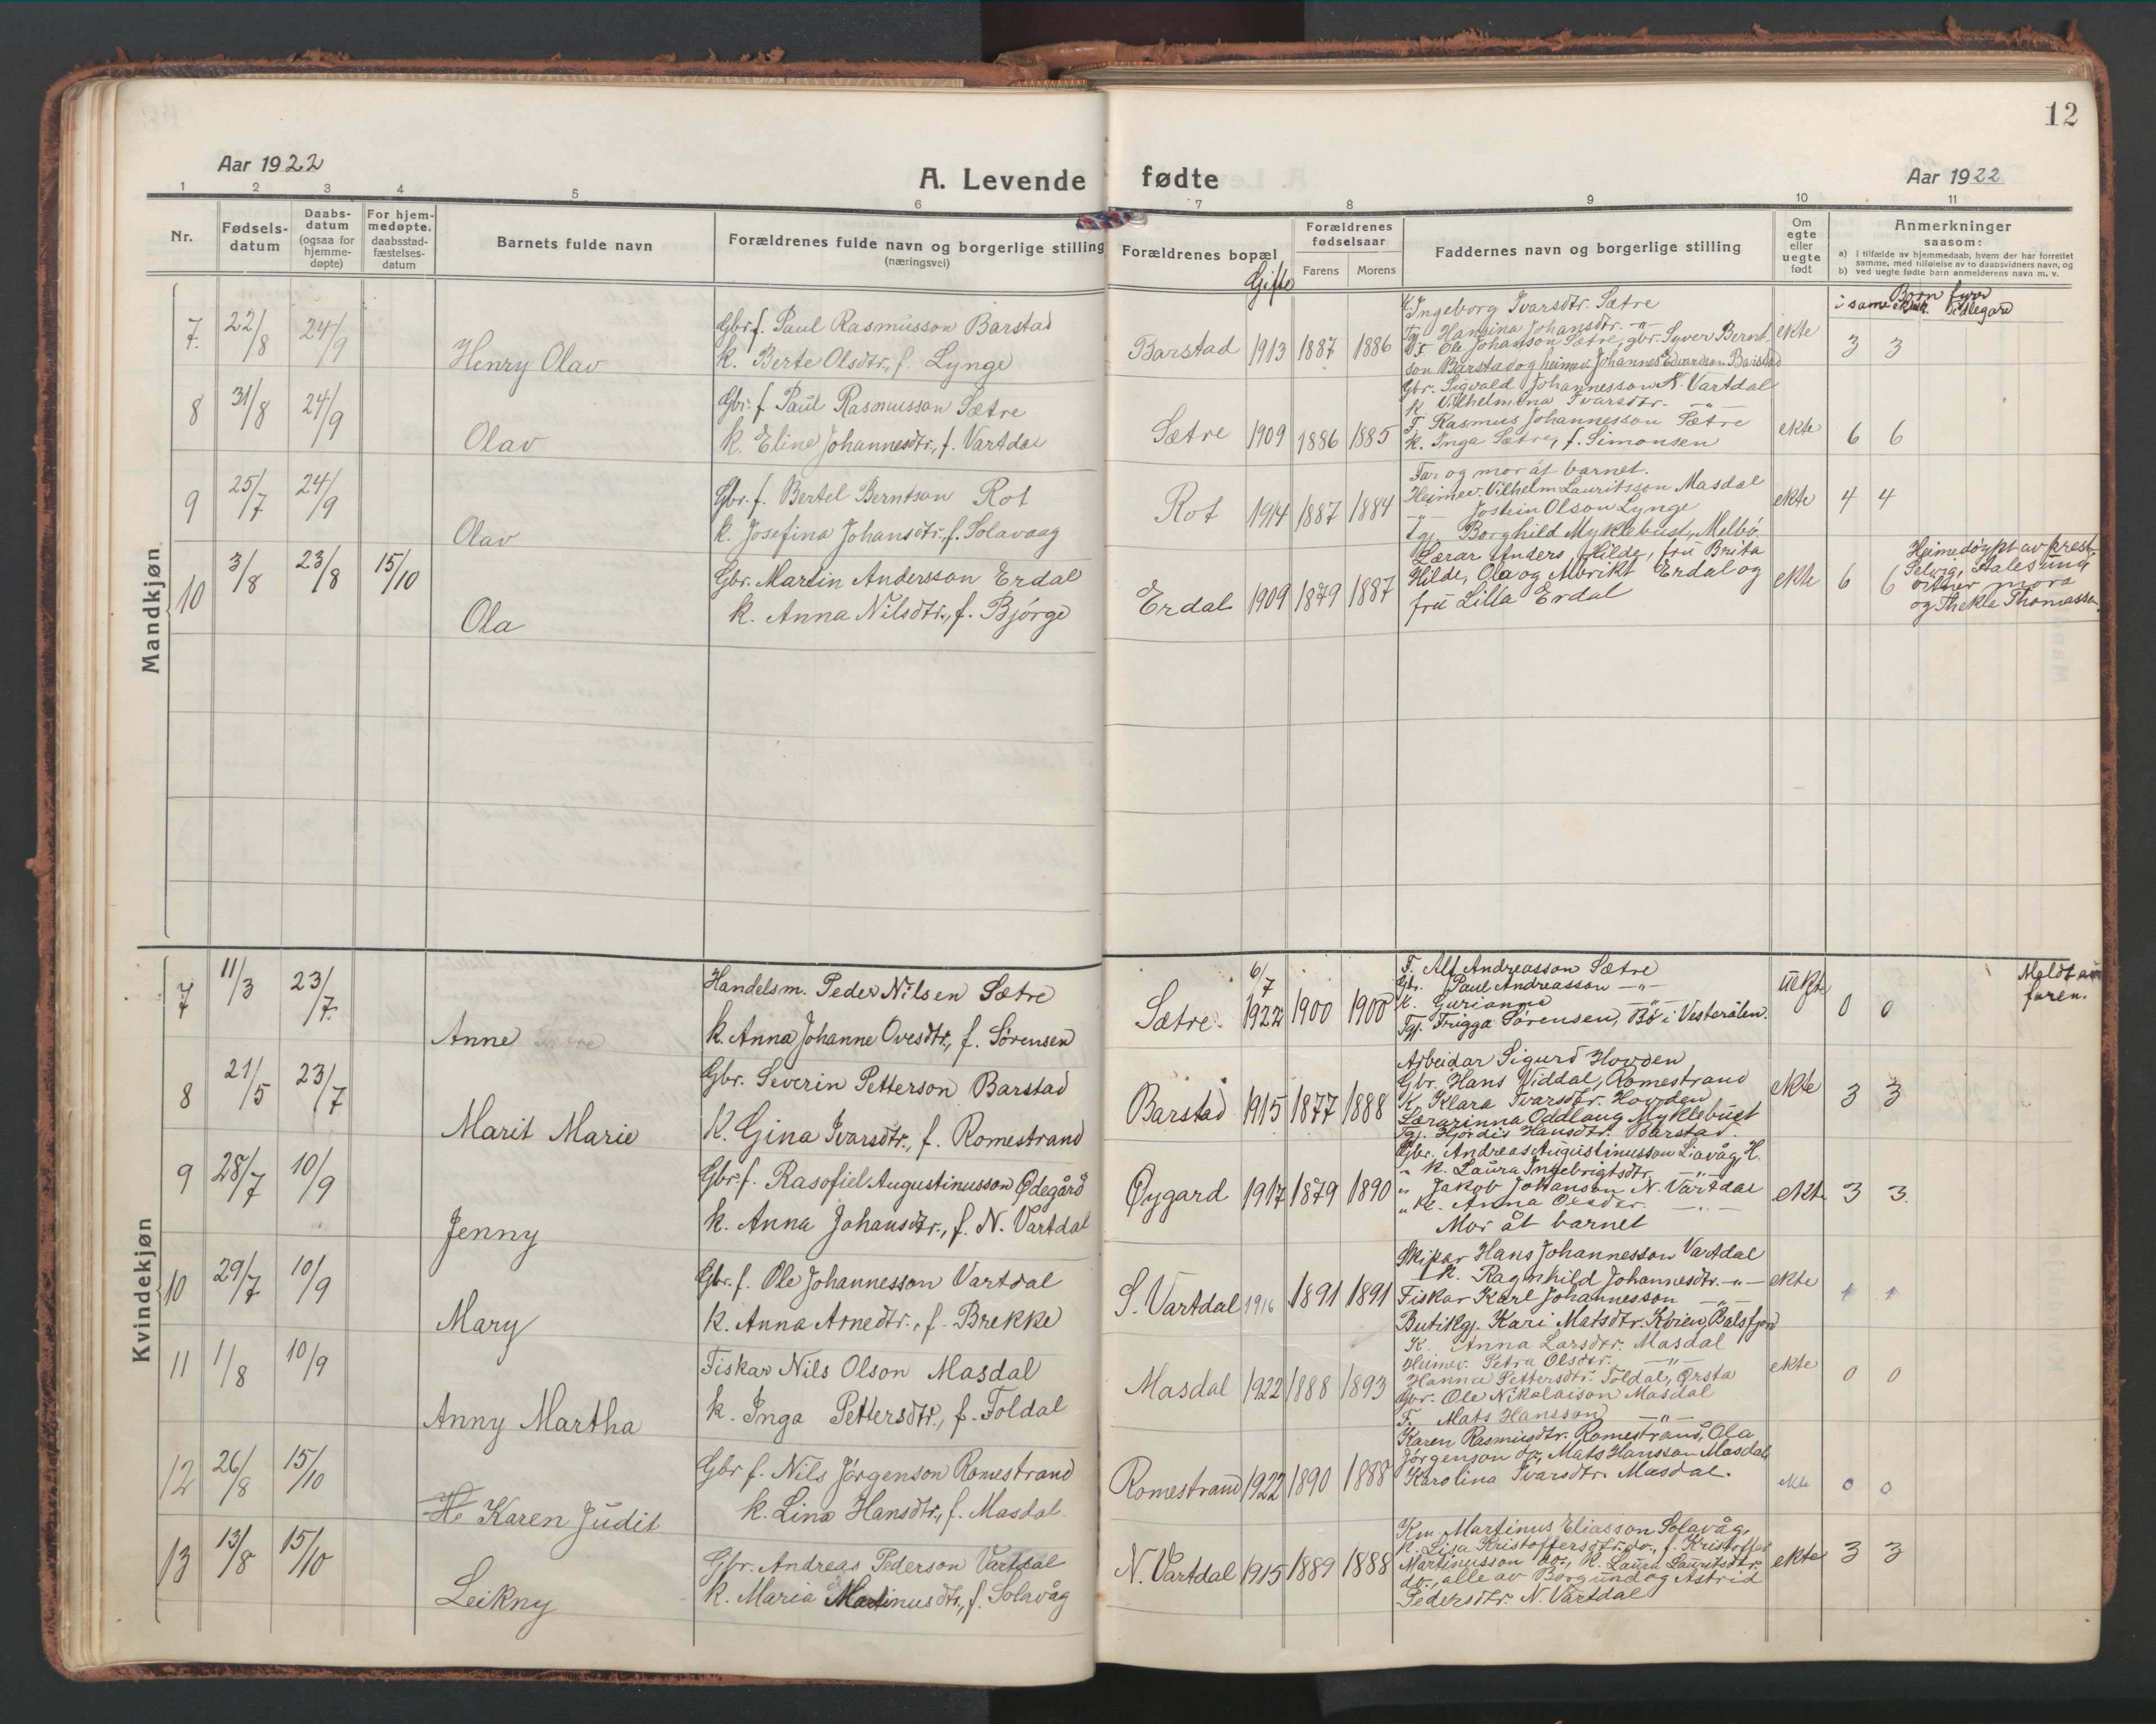 12
Aar 1922
A. Levende fødte
Aar 1922
1 2 3 4 5 6 7 8 9 10 11
Nr.
Fødsels-
datum
Daabs-
datum
(ogsaa for
hjemme-
døpte)
For hjem-
medøpte,
daabsstad-
fæstelses-
datum
Barnets fulde navn
Forældrenes fulde navn og borgerlige stilling
(næringsvei)
Forældrenes bopæl
Gifte
Forældrenes
fødselsaar
Farens Morens
Faddernes navn og borgerlige stilling
Om
egte
eller
uegte
født
Anmerkninger
saasom:
a) i tilfælde av hjemmedaab, hvem der har forrettet
samme, med tilføielse av to daabsvidners navn, og
b) ved uegte fødte barn anmelderens navn m. v.
Born fyrr
i same ektesk.
Mandkjøn
7. 22/8 24/9
Henry Olav
Gbr.f. Paul Rasmusson Barstad
k. Berte Olsdtr., f. Lynge
Barstad 1913 1887 1886
K. Ingeborg Ivarsdtr. Sætre
Tj. Hansina Johansdtr. -"-
F. Ole Johanson Sætre, gbr. Syver Bernt-
son Barstad og heimev. Johannes Edvardson Barstad
ekte 3 3
8 31/8 24/9
Olav
Gbr. f. Paul Rasmusson Sætre
k. Eline Johannesdtr., f. Vartdal
Sætre 1909 1886 1885
Gbr. Sigvald Johannesson N. Vartdal
K. Vilhelmina Ivarsdtr. -"-
F. Rasmus Johannesson Sætre
k. Inga Sætre, f. Simonsen
ekte 6 6
9 25/7 24/9
Olav
Gbr. f. Bertel Berntson Rot
k. Josefina Johansdtr., f. Solavaag
Rot 1914 1887 1884
Far og mor åt barnet.
Heimev. Vilhelm Lauritsson Masdal
-"- Jostein Olson Lynge
Tg. Borghild Myklebust, Melbø.
ekte 4 4
10 3/8 23/8 15/10
Ola
Gbr. Martin Andersson Erdal
k. Anna Nilsdtr., f. Bjørge
Erdal 1909 1879 1887
Lærar Anders Hilde, fru Brita
Hilde, Ola og Albrikt Erdal og
fru Lilla Erdal
ekte 6 6
Heimedøypt av prest
Selvig, Aalesund
vitner mora
og Thekla Thomassen.
Kvindekjøn
7 11/3 23/7.
Anne
Handelsm. Peder Nilsen Sætre
k. Anna Johanne Ovesdtr., f. Sørensen
Sætre. 6/7 1922 1900 1900
F. Alf Andreasson Sætre
Gbr. Paul Andreasson -"-
K. Gurianna -"-
Tgj. Frigga Sørensen, Bø i Vesterålen.
uekte 0 0
Meldt av
faren.
8 21/5 23/7
Marit Marie
Gbr. Severin Petterson Barstad
K. Gina Ivarsdtr., f. Romestrand
Barstad 1915 1877 1888
Arbeidar Sigurd Hovden
Gbr. Hans Viddal, Romestrand
K. Klara Ivarsdtr. Hovden
Lærarinna Oddlaug Myklebust
Tgj. Hjørdis Hansdtr. Barstad.
ekte 3 3
9 28/7 10/9
Jenny
Gbr.f. Rasofiel Augustinusson Ødegård
k. Anna Johansdtr., f. N. Vartdal
Øygard 1917 1879 1890
Gbr. Andreas Augustinusson Liavåg, H.
" k. Laura Ingebrigtsdtr. -"-
" Jakob Johanson N. Vartdal
" k. Anna Olsdtr. -"-
Mor åt barnet
ekte 3 3.
10 29/7 10/9
Mary
Gbr. f. Ole Johannesson Vartdal
k. Anna Arnedtr., f. Brekke
S. Vartdal 1916 1891 1891
Skipar Hans Johannesson Vartdal
k. Ragnhild Johannesdtr. -"-
Fiskar Karl Johannesson -"-
Butikgj. Kari Matsdtr. Kvien, Balsfjord
ekte 1 1
11 1/8 10/9
Anny Martha
Fiskar Nils Olson Masdal
k. Inga Pettersdtr., f. Foldal
Masdal 1922 1888 1893
K. Anna Larsdtr. Masdal
Heimev. Petra Olsdtr. -"-
Hanna Pettersdtr. Foldal, Ørsta
Gbr. Ole Nikolaison Masdal
F. Mats Hansson -"-
ekte 0 0
12 26/8 15/10
Karen Judit
Gbr f. Nils Jørgenson Romestrand
k. Lina Hansdtr., f. Masdal.
Romestrand 1922 1890 1888
Karen Rasmusdtr. Romestrand, Ola
Jørgenson do., Mats Hansson Masdal,
Karolina Ivarsdtr. Masdal.
ekte 0 0
13 13/8 15/10
Leikny
Gbr. Andreas Pederson Vartdal
k. Maria Martinusdtr., f. Solavåg
N. Vartdal 1915 1889 1888
Km. Martinus Eliasson Solavåg,
k. Lisa Kristoffersdtr. do., f. Kristoffer
Martinusson do., k. Laura Lauritsdtr.
do., alle av Borgund og Astrid
Pedersdtr. N. Vartdal
ekte 3 3